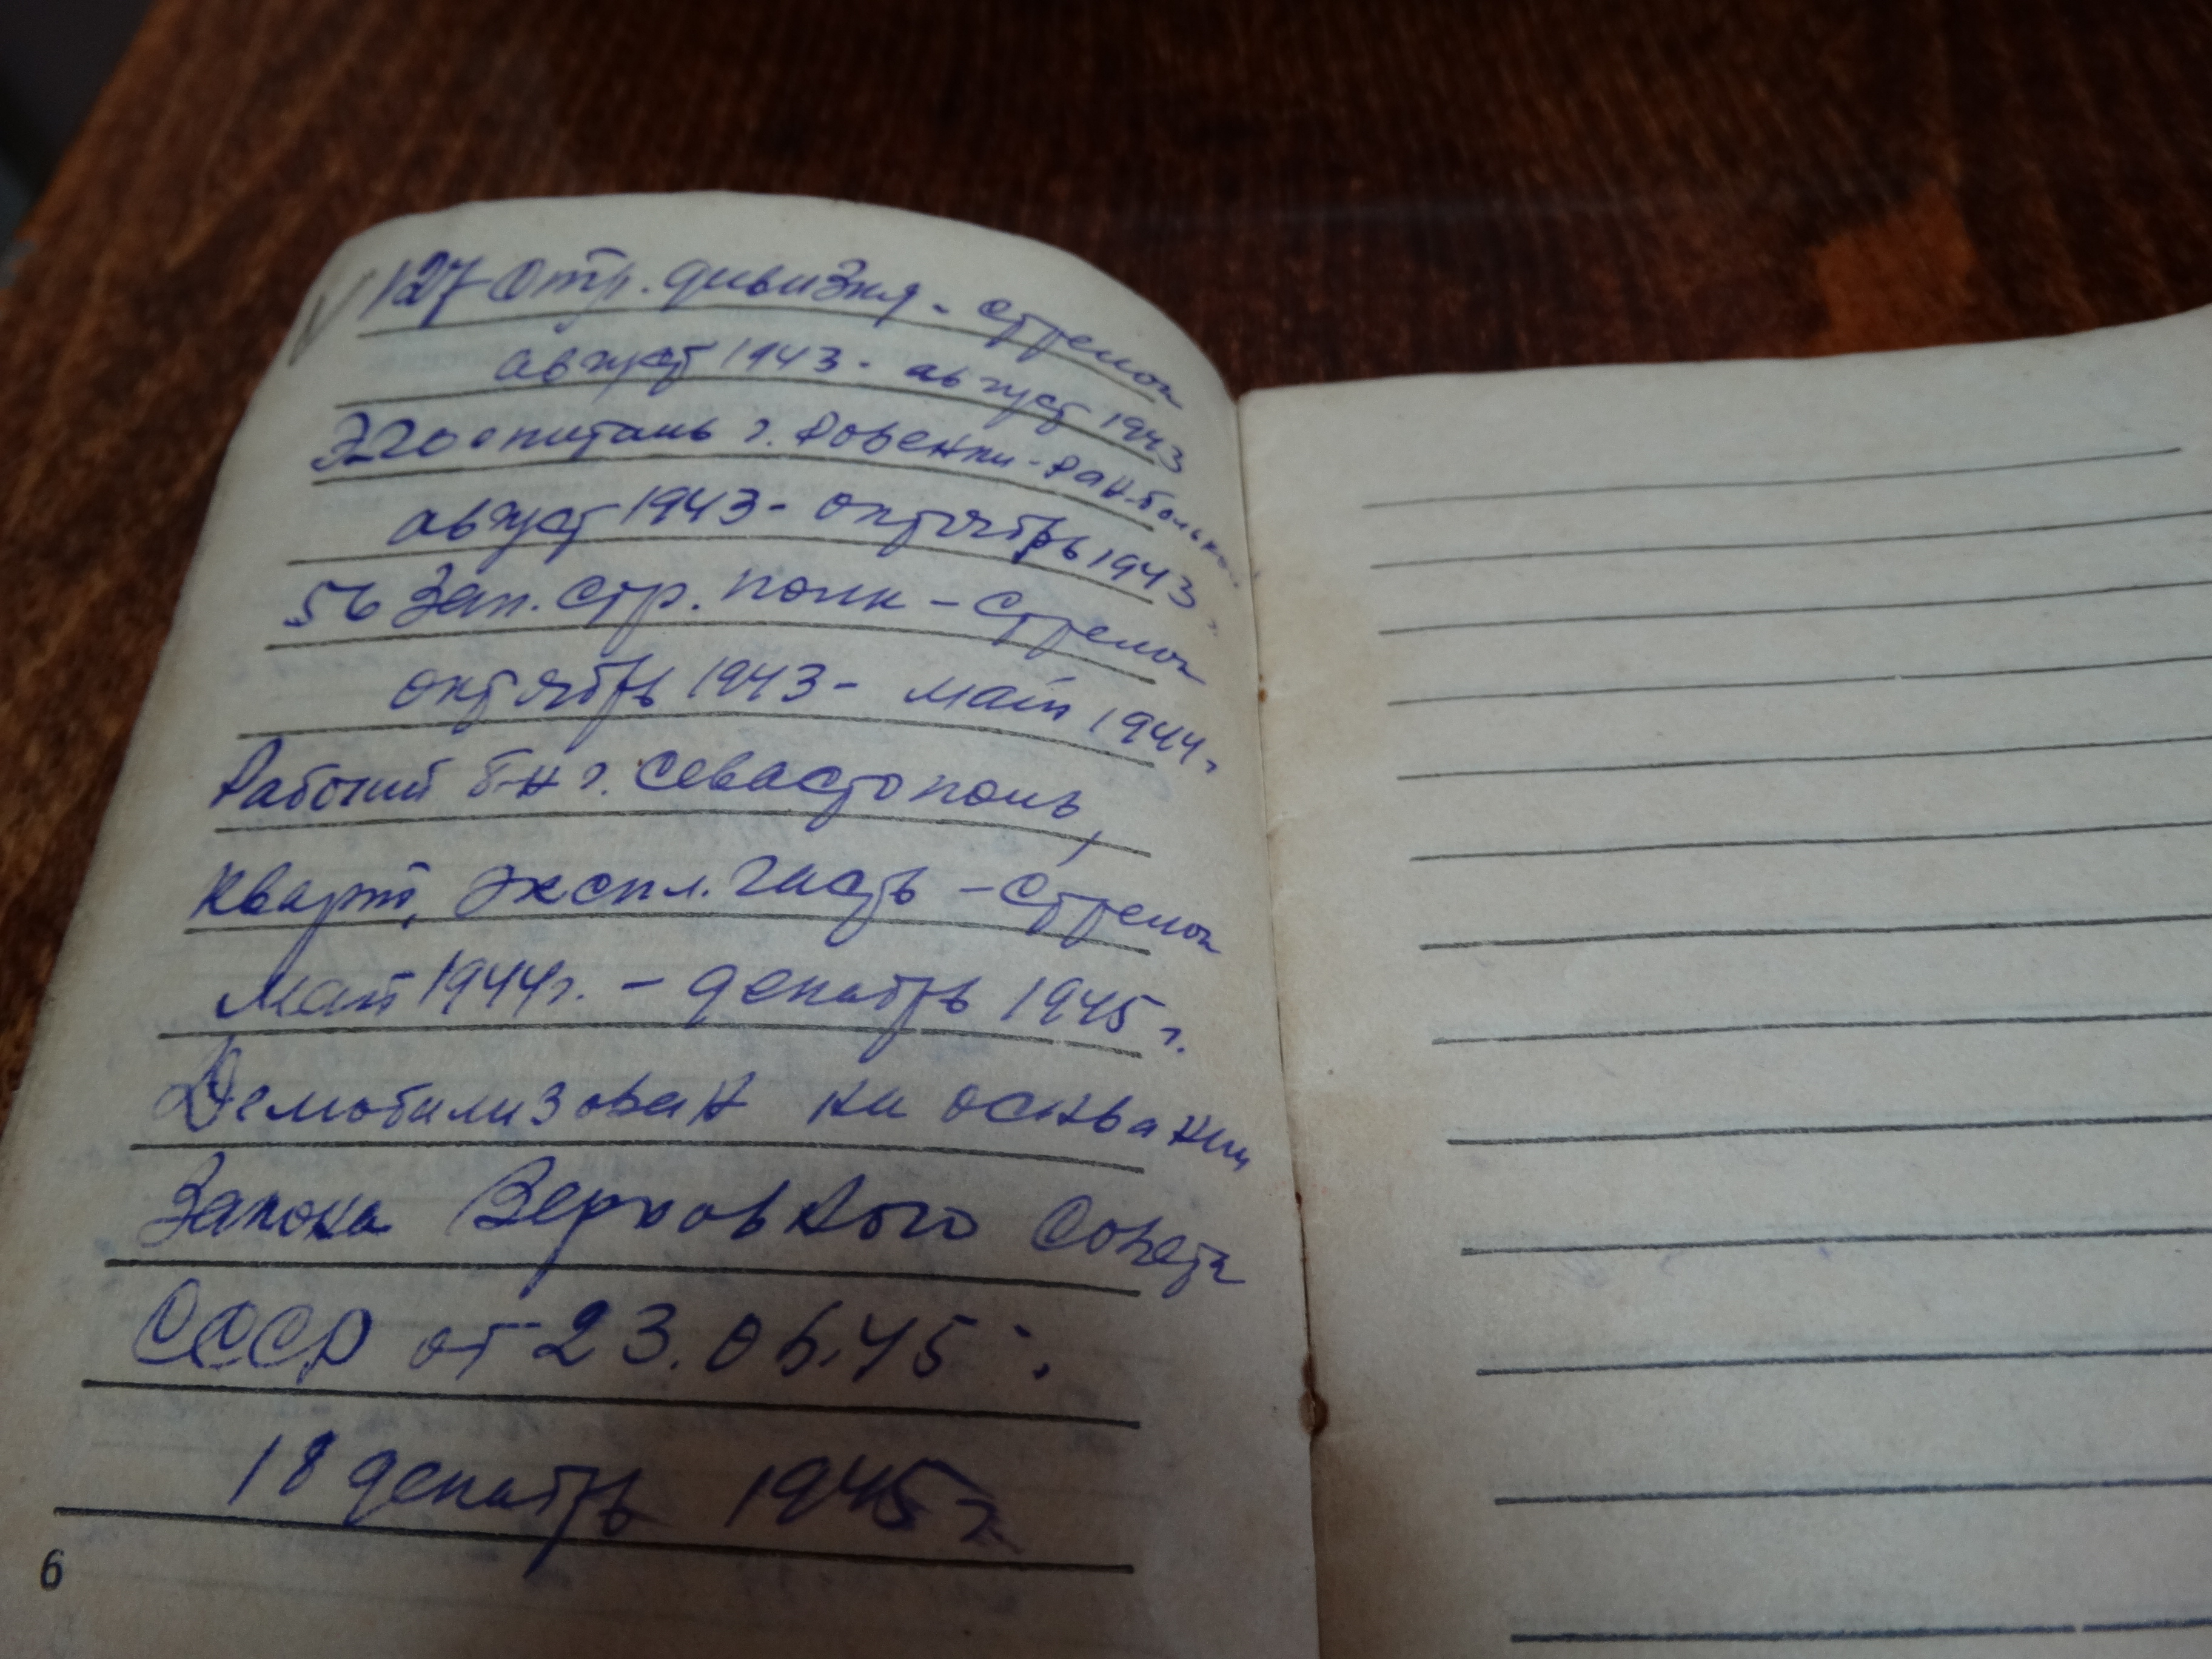 127 стр. дивизия - стрелок
август 1943 - август 1943
госпиталь г. Ровеньки - ран-больной
август 1943 - октябрь 1943
56 Зап. стр. полк - стрелок
октябрь 1943 - май 1944 г
Рабочий б-н г. Севастополь,
Кварт. экспл. часть - стрелок
Май 1944 г. - декабрь 1945 г.
Демобилизован на основании
Закона Верховного Совета
СССР от 23.06.45 г.
18 декабрь 1945 г.
6